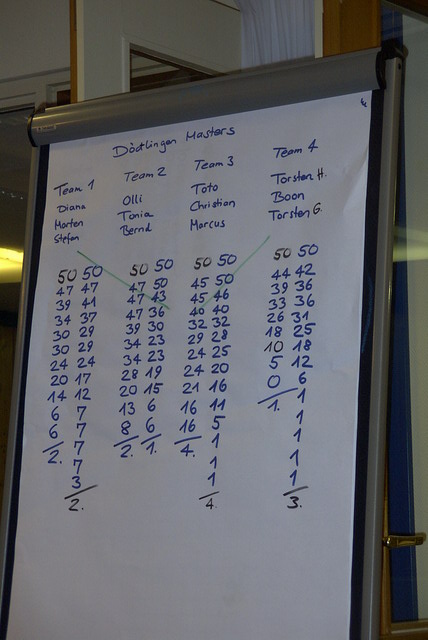 Dötlingen Masters
Team 1
Diana
Marten
Stefan
50 50
47 47
39 41
34 37
30 29
30 29
24 24
20 17
14 12
6 7
6 7
2. 7
7
3
2.
Team 2
Olli
Tonia
Bernd
50 50
47 50
47 43
47 36
39 30
34 23
34 23
28 19
20 15
13 6
8 6
2. 1.
Team 3
Toto
Christian
Marcus
50 50
45 50
45 46
40 40
32 32
29 28
24 25
24 20
21 16
16 11
16 5
4. 1
1
1
4.
Team 4
Torsten H.
Boon
Torsten G.
50 50
44 42
39 36
33 36
26 31
18 25
10 18
5 12
0 6
1. 1
1
1
1
1
3.